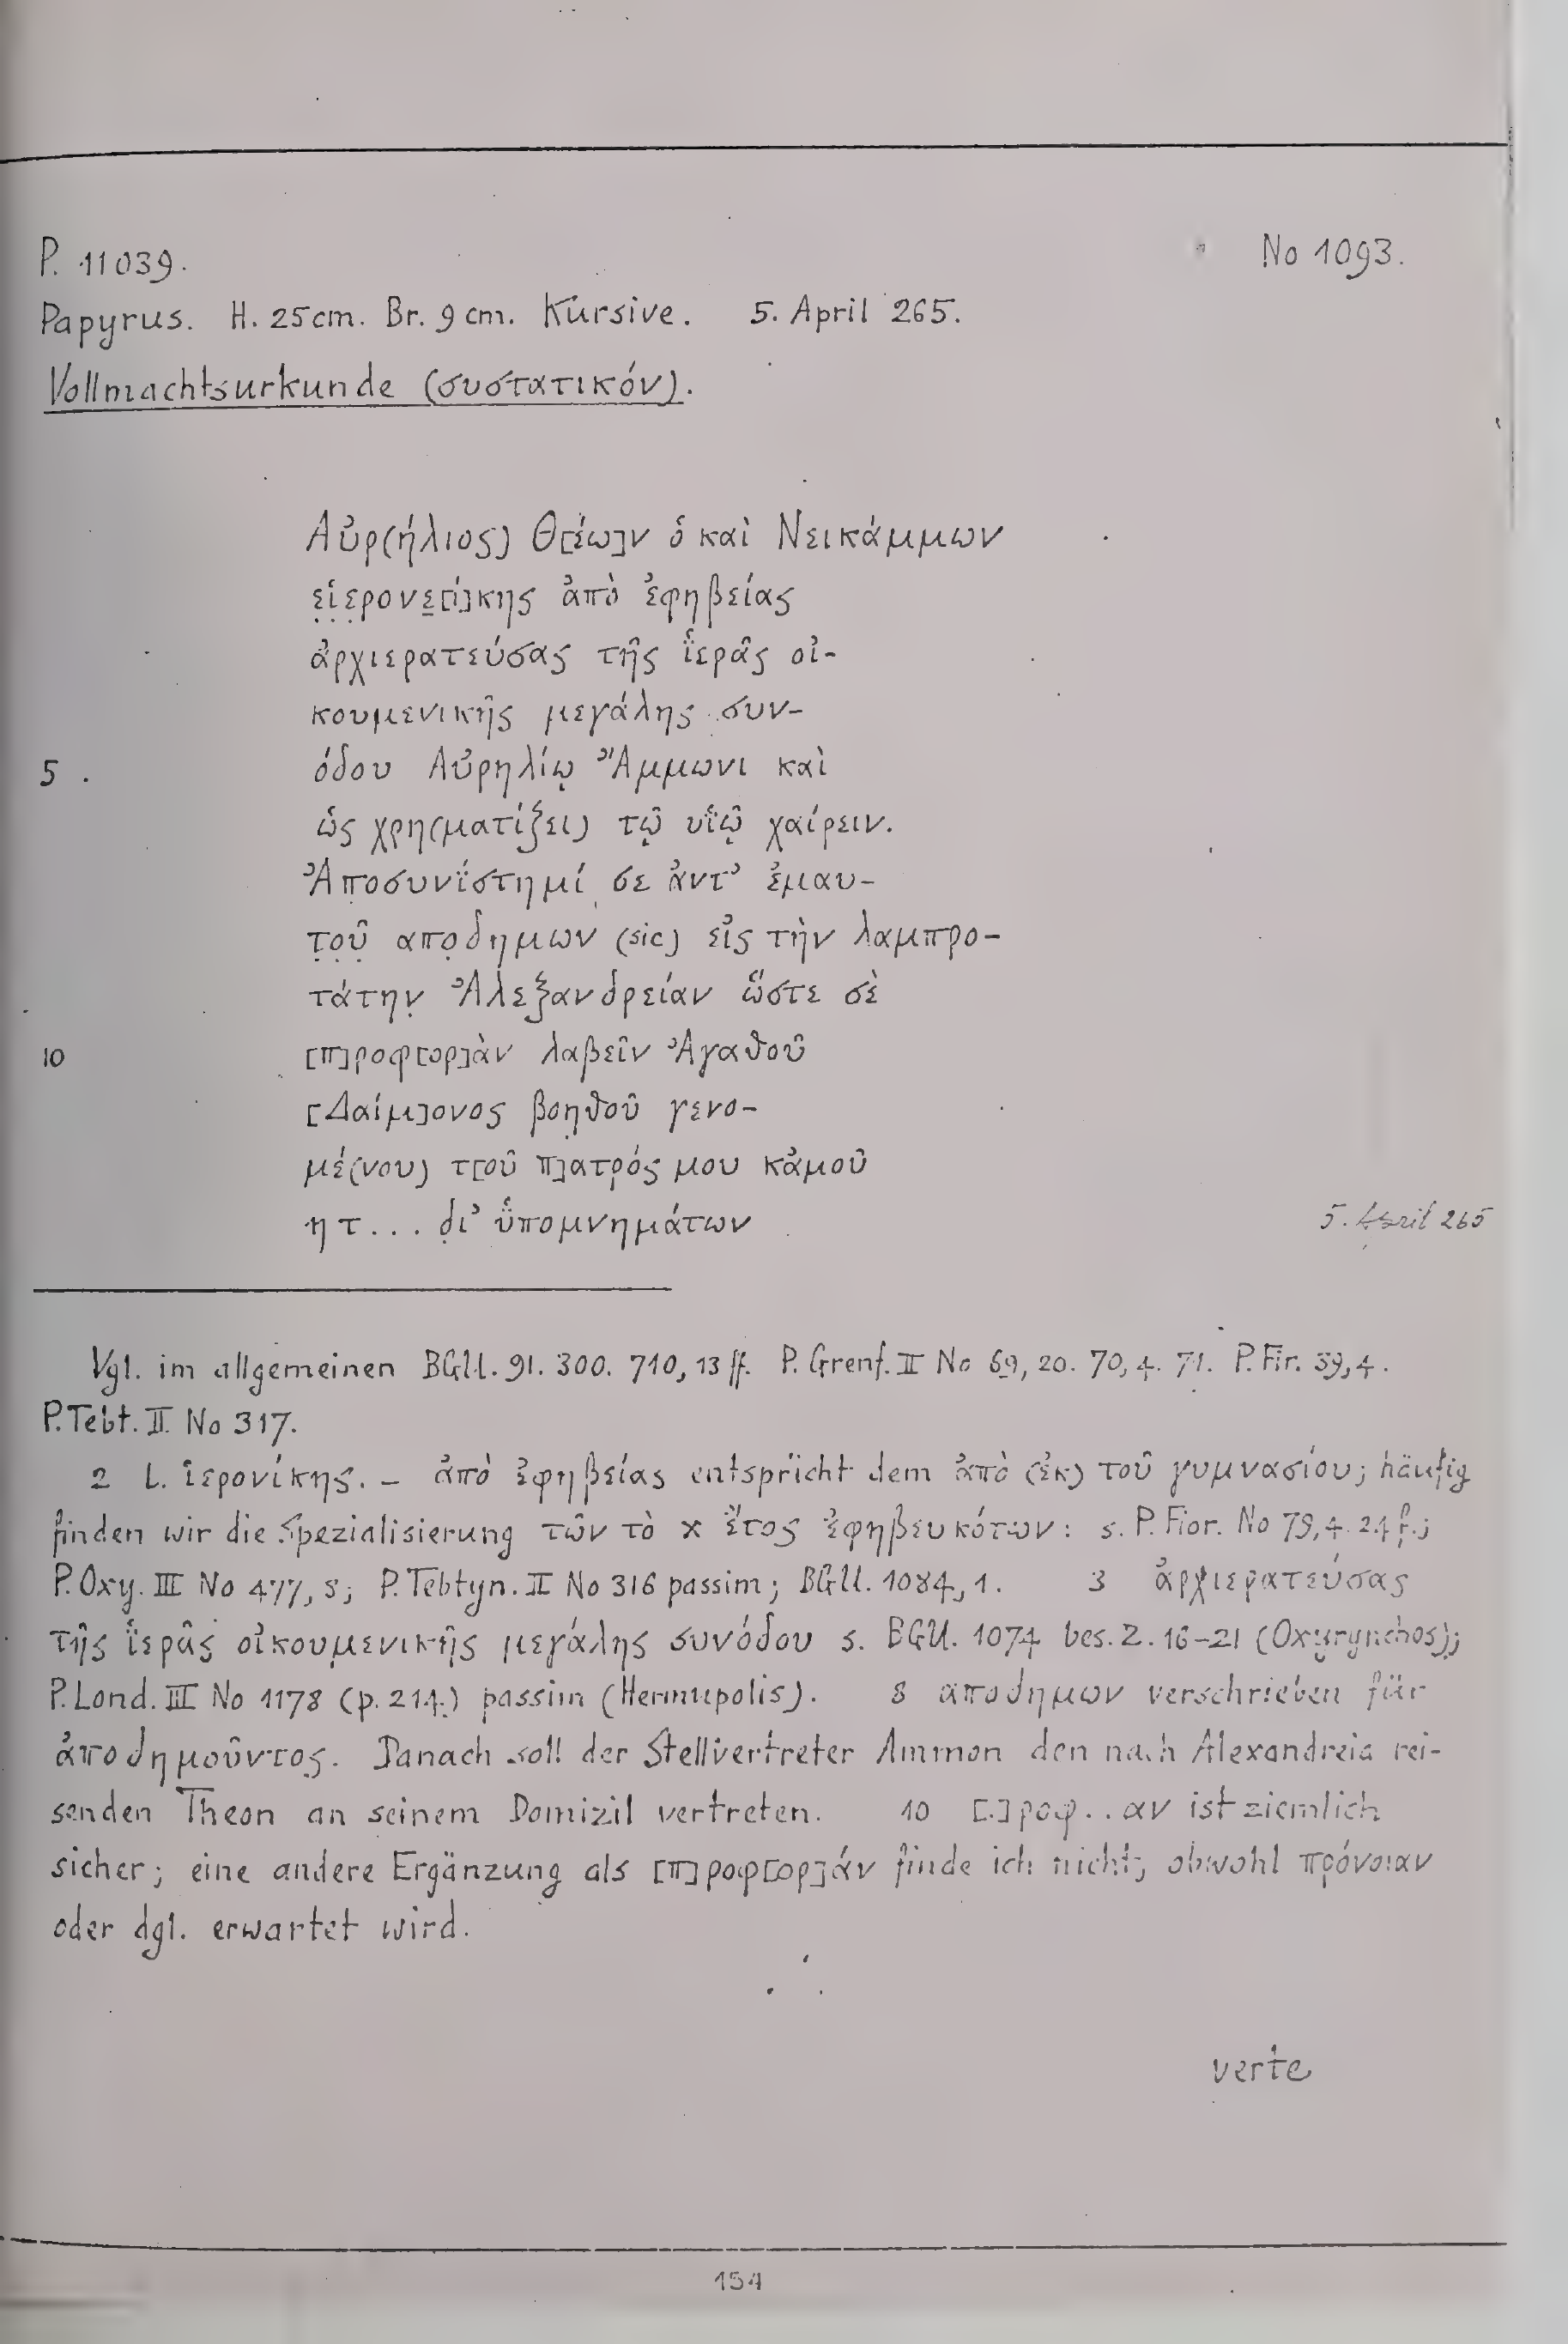 P. 11039.
No 1093.
Papyrus. H. 25cm. Br. 9 cm. Kursive. 5. April 265.
Vollmachtsurkunde (συστατικόν).
Αὐρ(ήλιος) Θ[έω]ν ὁ καὶ Νεικάμμων
ε̣ἱ̣ε̣ρονε̣[ί]κης ἀπὸ ἐφηβείας
ἀρχιερατεύσας τῆς ἱ̈ερᾶς οἰ-
κουμενικῆς μεγάλης συν-
5 όδου Αὐρηλίῳ Ἄμμωνι καὶ
ὡς χρη(ματίζει) τῷ υἱ̈ῷ χαίρειν.
Ἀποσυνΐστημί σε ἀντ' ἐμαυ-
τ̣ο̣ῦ̣ απο̣δημων (sic) εἰς τὴν λαμπρο-
τάτην̣ Ἀλεξανδρείαν ὥστε σὲ
10 [π]ροφ[ορ]ὰν λαβεῖν Ἀγαθοῦ
[Δαίμ]ονος βοηθ̣οῦ γενο-
μέ(νου) τ[οῦ π]ατρός μου κἀμοῦ
ητ... δ̣ι' ὑ̈πομνημάτων
5. April 265
Vgl. im allgemeinen BGU. 91. 300. 710, 13 ff. P. Grenf. II No 69, 20. 70, 4. 71. P. Fir. 39, 4.
P. Tebt. II No 317.
2 L. ἱερονίκης. – ἀπὸ ἐφηβείας entspricht dem ἀπὸ (ἐκ) τοῦ γυμνασίου; häufig
finden wir die Spezialisierung τῶν τὸ x ἔτος ἐφηβευκότων: s. P. Fior. No 79, 4. 24 f.;
P. Oxy. III No 477, 8; P. Tebtyn. II No 316 passim; BGU. 1084, 1. 3 ἀρχιερατεύσας
τῆς ἱ̈ερᾶς οἰκουμενικῆς μεγάλης συνόδου s. BGU. 1074 bes. Z. 16–21 (Oxyrynchos);
P. Lond. III No 1178 (p. 214.) passim (Hermupolis). 8 αποδημων verschrieben für
ἀποδημοῦντος. Danach soll der Stellvertreter Ammon den nach Alexandreia rei-
senden Theon an seinem Domizil vertreten. 10 [.]ροφ..αν ist ziemlich
sicher; eine andere Ergänzung als [π]ροφ[ορ]άν finde ich nicht, obwohl πρόνοιαν
oder dgl. erwartet wird.
verte
154